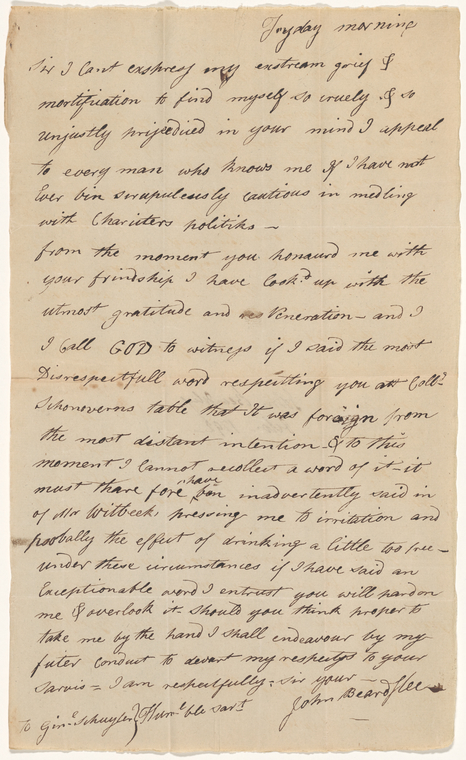 Teusday morning
Sir I Cant exshpress my exstream grief &
mortification to find myself so cruely & so
unjustly prijedied in your mind I appeal
to every man who knows me If I have not
Ever bin scrupulcusly cautious in medling
with Charicters politiks —
from the moment you honaurd me with
your frindship I have Look.d up with the
utmost gratitude and Veneration — and I
I Call GOD to witness if I said the most
Disrespectfull word respeitting you att Coll.
Schonoverns table that It was foreign from
the most distant intention & to this
moment I Cannot recollect a word of it — it
must thare fore have ban inadvertently said in
of Mr Witbeck, pressing me to irritation and
probably the effect of drinking a little too free —
under these circumstances if I have said an
Exceptionable word I entrust you will pardon
me & overlook it should you think proper to
take me by the hand I shall endeavour by my
futer Conduct to devart my respectys to your
Sarvis = I am respectfully = Sir your —
to Gin.l Schuyler } Hum.l ble sar.t John Beardslee